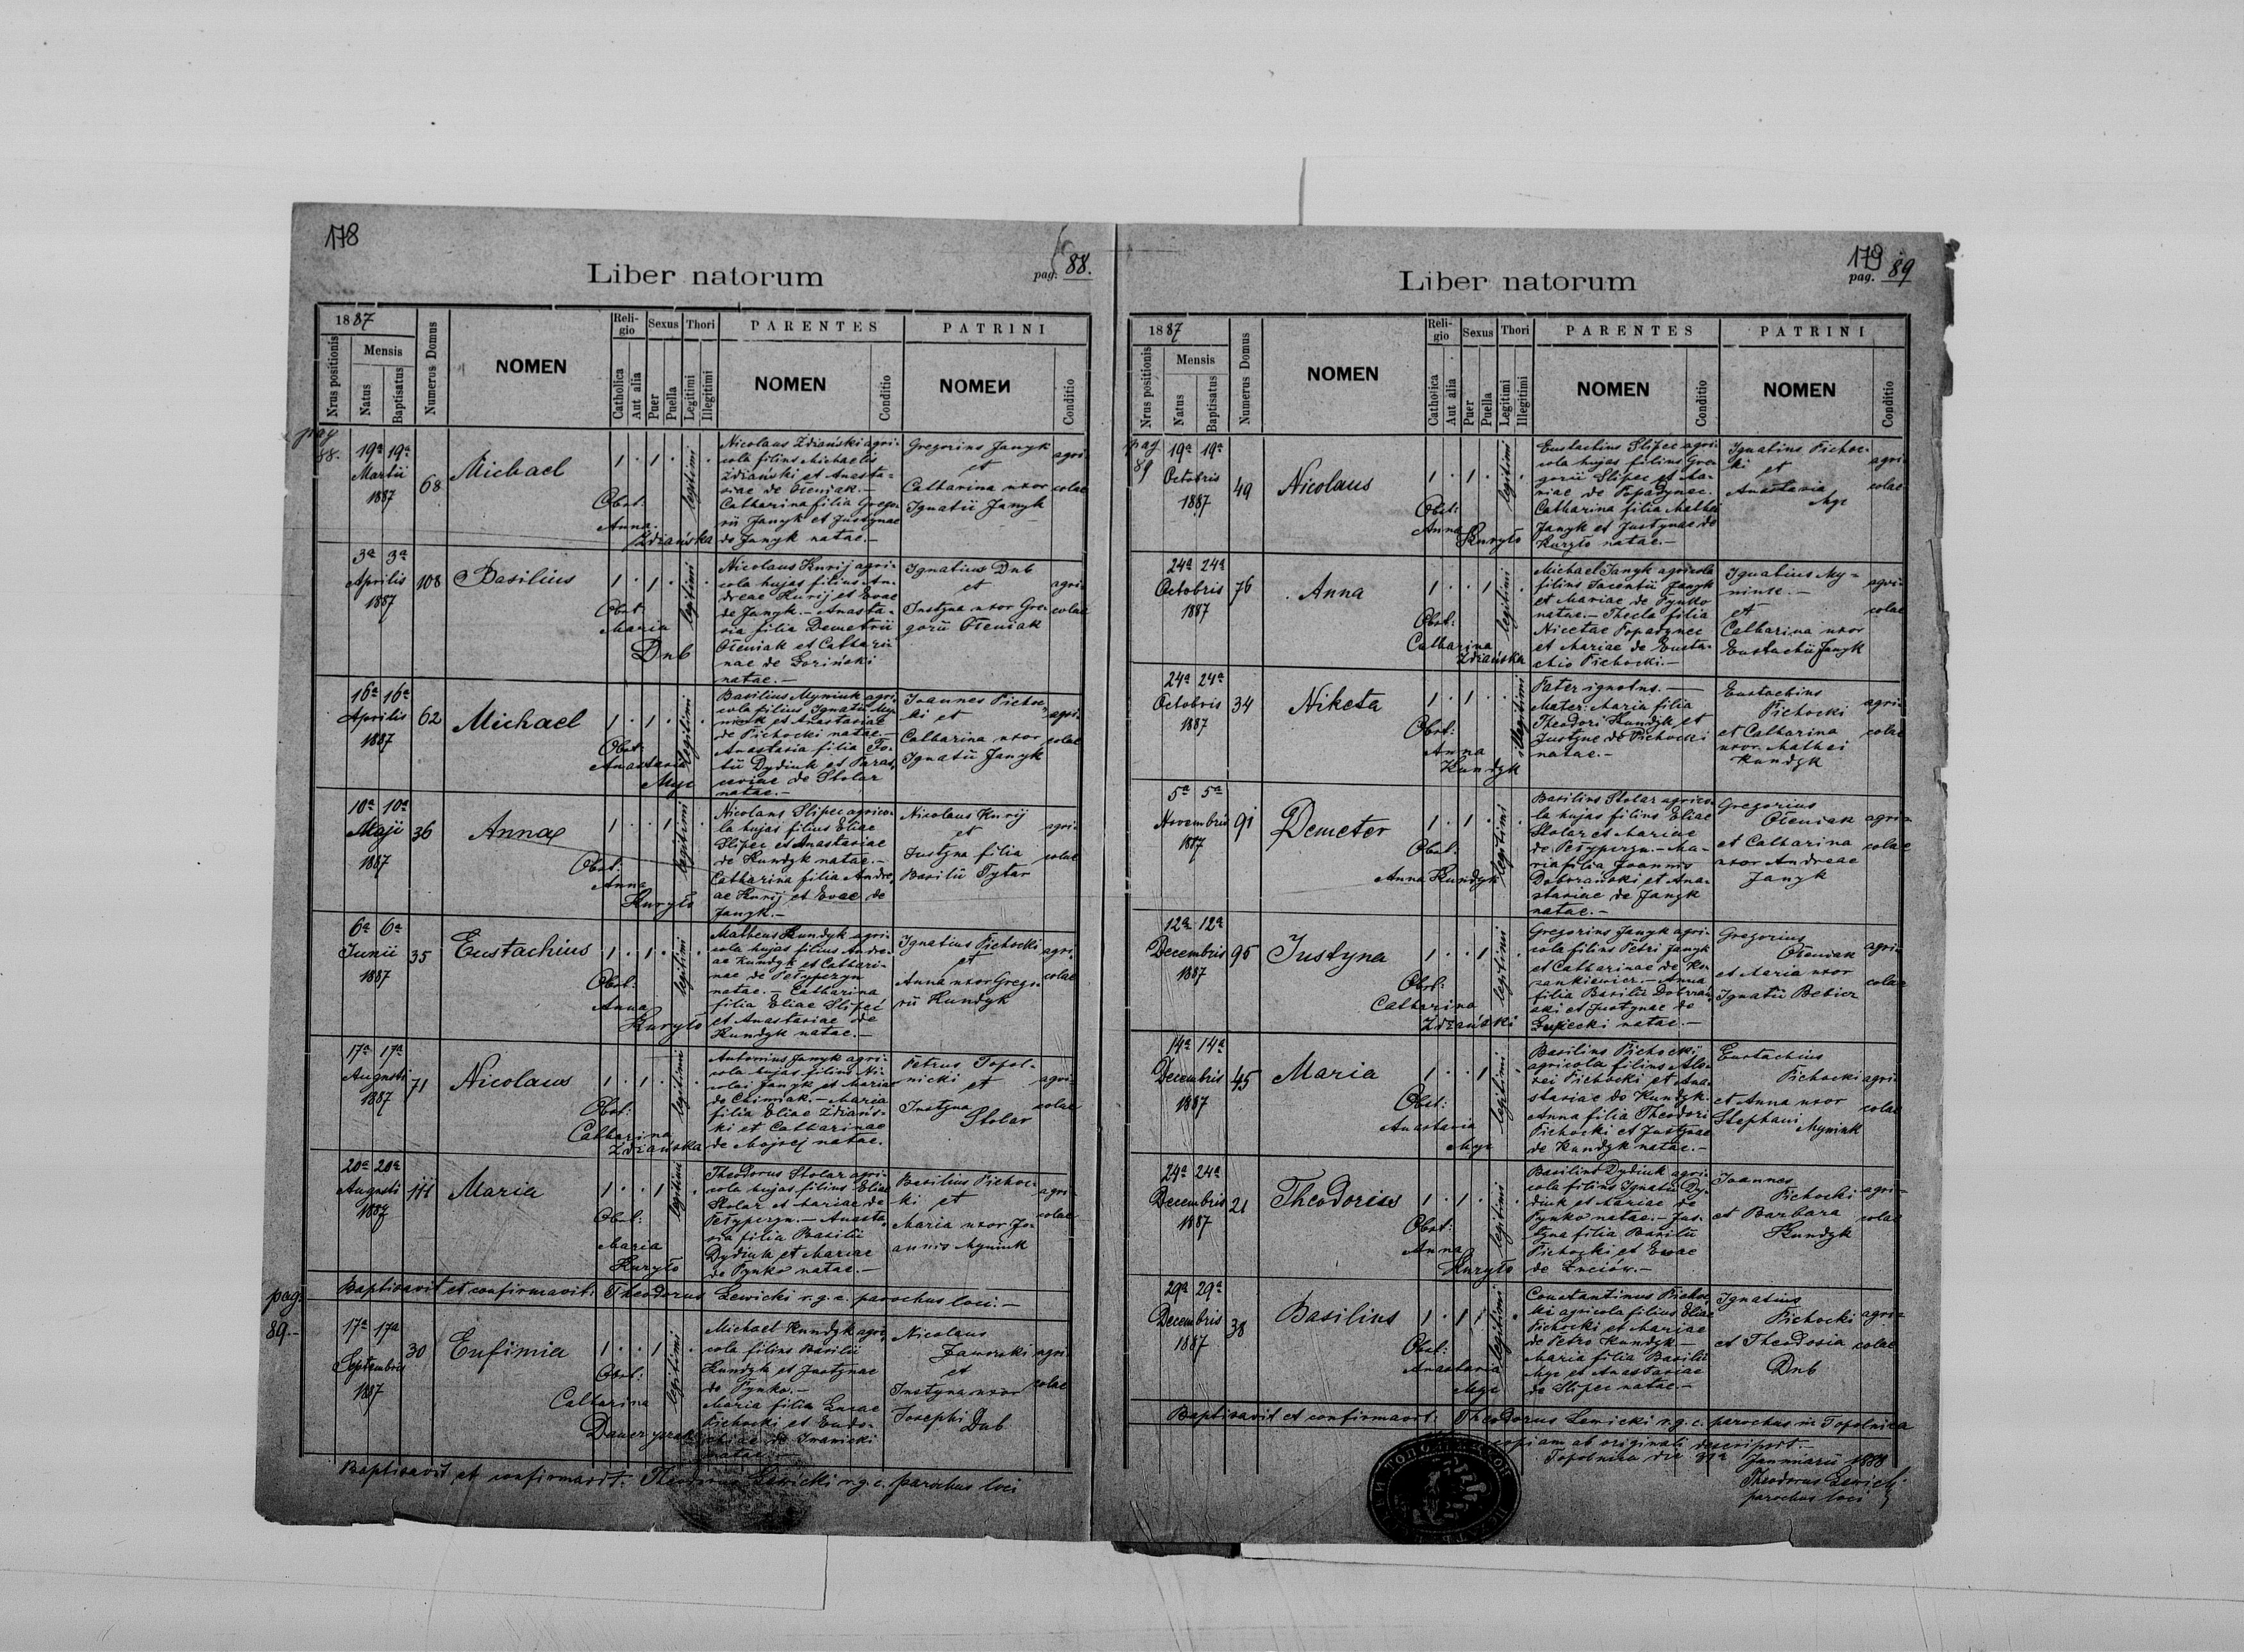 178
Liber natorum
pag. 88.
1887
Nrus positionis
Mensis
Natus
Baptisatus
Numerus Domus
NOMEN
Religio
Catholica
Aut alia
Sexus
Puer
Puella
Thori
Legitimi
Illegitimi
PARENTES
NOMEN
Conditio
PATRINI
NOMEN
Conditio
pag
88.
19a 19a
Martii
1887
68
Michael
1 . 1 . .
legitimi
Obst.
Anna
Zdiańska
Nicolaus Zdiański agri-
cola filius Michaelis
Zdiański et Anasta-
siae de Oleniak.-
Catharina filia Grego-
rii Janyk et Justynae
de Janyk natae.-
Gregorius Janyk
et
Catharina uxor
Ignatii Janyk
agri-
colae
3a 3a
Aprilis
1887
108
Basilius
1 . 1 . .
legitimi
Obst:
Maria
Dub
Nicolaus Kurij agri-
cola hujas filius An-
dreae Kurij et Evae
de Janyk.- Anasta-
sia filia Demetrii
Oleniak et Cathari
nae de Goriński
natae.-
Ignatius Dub
et
Justyna uxor Gre-
gorii Oleniak
agri-
colae
16a 16a
Aprilis
1887
62
Michael
1 . 1 . .
legitimi
Obst:
Anastasia
Myc
Basilius Myniuk agri-
cola filius Ignatii My-
niuk et Anastasiae
de Pichocki natae.-
Anastasia filia Fo-
tii Dydiuk et Paras-
ceviae de Stolar
natae.-
Joannes Pichoc-
ki et
Catharina uxor
Ignatii Janyk
agri-
colae
10a 10a
Maji
1887
36
Anna
1 . . 1 .
legitimi
Obst:
Anna
Kuryło
Nicolaus Slipec agrico-
la hujas filius Eliae
Slipec et Anastasiae
de Kundyk natae.-
Catharina filia Andre-
ae Kurij et Evae de
Janyk.-
Nicolaus Kurij
et
Justyna filia
Basilii Tytar
agri-
colae
6a 6a
Junii
1887
35
Eustachius
1 . 1 . .
legitimi
Obst:
Anna
Kuryło
Matheus Kundyk agri-
cola hujas filius Andre-
ae Kundyk et Cathari-
nae de Petyperyn
natae.- Catharina
filia Eliae Slipeć
et Anastasiae de
Kundyk natae.-
Ignatius Pichocki
et
Anna uxor Grego
rii Kundyk
agri-
colae
17a 17a
Augusti
1887
71
Nicolaus
1 . 1 . .
legitimi
Obst:
Catharina
Zdiańska
Antonius Janyk agri-
cola hujas filius Ni-
colai Janyk et Mariae
de Chimiak.- Maria
filia Eliae Zdiańs-
ki et Catharinae
de Mojsej natae.
Petrus Topol-
nicki
et
Justyna
Stolar
agri-
colae
20a 20a
Augusti
1887
111
Maria
1 . . 1 .
legitimi
Obst:
Maria
Kuryło
Theodorus Stolar agri-
cola hujas filius Eliae
Stolar et Mariae de
Petyperyn.- Anasta-
sia filia Basilii
Dydiuk et Mariae
de Fynko natae.-
Basilius Pichoc-
ki et
Maria uxor Jo-
annis Myniuk
agri-
colae
pag.
89.-
Baptisavit et confirmavit: Theodorus Lewicki r.g.c. parochus loci.-
17a 17a
Septembris
1887
30
Eufimia
1 . . 1 .
legitimi
Obst:
Catharina
Michael Kundyk agri-
cola filius Basilii
Kundyk et Justynae
de Fynko.-
Maria filia Lucae
Pichocki et Eudo-
Iwanicki
natae.-
Nicolaus
Jaworski
et
Justyna uxor
Josephi
Dub
agri-
colae
Baptisavit et confirmavit: Theodorus Lewicki r.g.c. parochus loci
179
Liber natorum
pag. 89
1887
Nrus positionis
Mensis
Natus
Baptisatus
Numerus Domus
NOMEN
Religio
Catholica
Aut alia
Sexus
Puer
Puella
Thori
Legitimi
Illegitimi
PARENTES
NOMEN
Conditio
PATRINI
NOMEN
Conditio
pag
89
19a 19a
Octobris
1887
49
Nicolaus
1 . 1 . .
legitimi
Obst:
Anna
Kuryło
Eustachius Slipec agri-
cola hujas filius Gre-
gorii Slipec et Ma-
riae de Popadynec.
Catharina filia Mathei
Janyk et Justynae de
Kuryło natae.-
Ignatius Pichoc-
ki
et
Anastasia
Myc
agri-
colae
24a 24a
Octobris
1887
76
Anna
1 . . 1 .
legitimi
Obst:
Catharina
Zdiańska
Michael Janyk agricola
filius Jacentii Janyk
et Mariae de Fynko
natae.- Thecla filia
Nicetae Popadynec
et Mariae de Eusta-
chio Pichocki.-
Ignatius My-
niuk.-
et
Catharina uxor
Eustachii Janyk
agri-
colae
24a 24a
Octobris
1887
34
Niketa
1 . 1 . .
illegitimi
Obst:
Anna
Kundyk
Pater ignotus.-
Mater: Maria filia
Theodori Kundyk et
Justynae de Pichocki
natae.-
Eustachius
Pichocki
et Catharina
uxor Mathei
Kundyk
agri-
colae
5a 5a
Novembris
1887
91
Demeter
1 . 1 . .
legitimi
Obst:
Anna Kundyk
Basilius Stolar agrico-
la hujas filius Eliae
Stolar et Mariae
de Petyperyn.- Ma-
ria filia Joannis
Dobrzański et Ana-
stasiae de Janyk
natae.-
Gregorius
Oleniak
et Catharina
uxor Andreae
Janyk
agri-
colae
12a 12a
Decembris
1887
95
Justyna
1 . . 1 .
legitimi
Obst:
Catharina
Zdiański
Gregorius Janyk agri-
cola filius Petri Janyk
et Catharinae de Ko-
zankiewicz.- Anna
filia Basilii Dobrzań-
ski et Justynae de
natae.-
Gregorius
Oleniak
et Maria uxor
Ignatii Bebicz
agri-
colae
14a 14a
Decembris
1887
45
Maria
1 . . 1 .
legitimi
Obst:
Anastasia
Myc
Basilius Pichocki
agricola filius Ale-
xei Pichocki et Ana-
stasiae de Kundyk.
Anna filia Theodori
Pichocki et Justynae
de Kundyk natae.-
Eustachius
Pichocki
et Anna uxor
Stephani
Myniuk
agri-
colae
24a 24a
Decembris
1887
21
Theodorus
1 . 1 . .
legitimi
Obst:
Anna
Kuryło
Basilius Dydiuk agri-
cola filius Ignatii Dy-
diuk et Mariae de
Fynko natae.- Jus-
tyna filia Basilii
Pichocki et Evae
de Łuciów.-
Joannes
Pichocki
et Barbara
Kundyk
agri-
colae
29a 29a
Decembris
1887
38
Basilius
1 . 1 .
legitimi
Obst:
Anastasia
Myc
Constantinus Pichoc-
ki agricola filius Eliae
Pichocki et Mariae
de Petro Kundyk.-
Maria filia Basilii
Myc et Anastasiae
de Slipec natae.-
Ignatius
Pichocki
et Theodosia
Dub
agri-
colae
Baptisavit et confirmavit: Theodorus Lewicki r.g.c. parochus in Topolnica
copiam ab originali descripsit.-
Topolnica die 31a Januarii 1888
Theodorus Lewicki
parochus loci